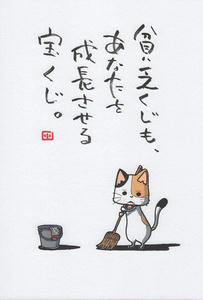 貧乏くじも、
あなたを
成長させる
宝くじ。